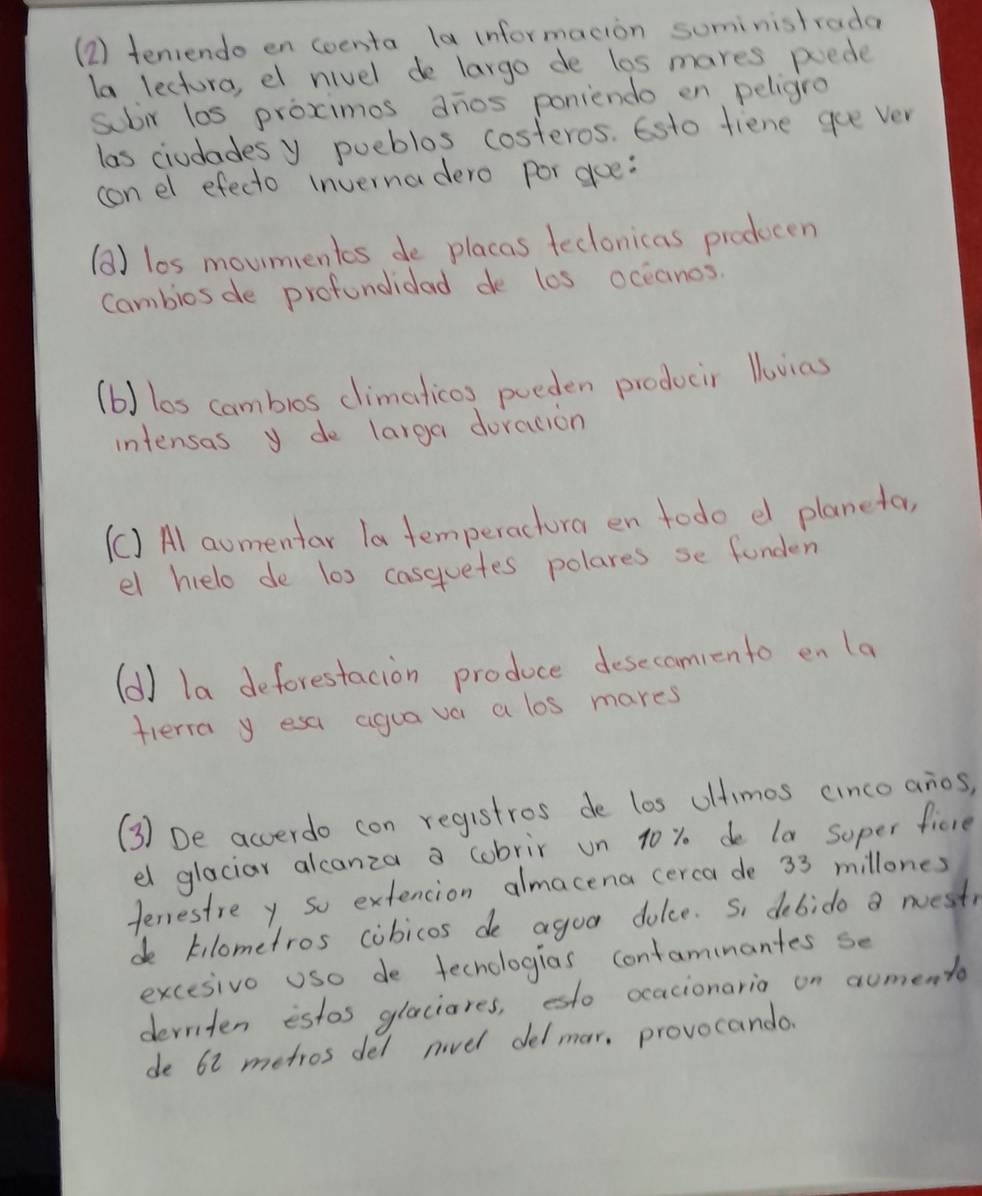 (2) teniendo en cuenta la información suministrada
la lectura, el nivel de largo de los mares puede
subir los próximos años poniendo en peligro
las ciudades y pueblos costeros. Esto tiene que ver
con el efecto invernadero por que:
(a) los movimientos de placas teclonicas producen
cambios de profundidad de los océanos.
(b) los cambios climaticos pueden producir lluvias
intensas y de larga duración
(c) Al aumentar la temperactura en todo el planeta,
el hielo de los casquetes polares se funden
(d) la deforestación produce desecamiento en la
tierra y esa agua va a los mares
(3) De acuerdo con registros de los ultimos cinco años,
el glaciar alcanza a cubrir un 10% de la super ficie
terrestre y su extencion almacena cerca de 33 millones
de kilometros cúbicos de agua dulce. Si debido a nuestr
excesivo uso de tecnologías contaminantes se
derriten éstos glaciares, esto ocacionaria un aumento
de 62 metros del nivel del mar. provocando.